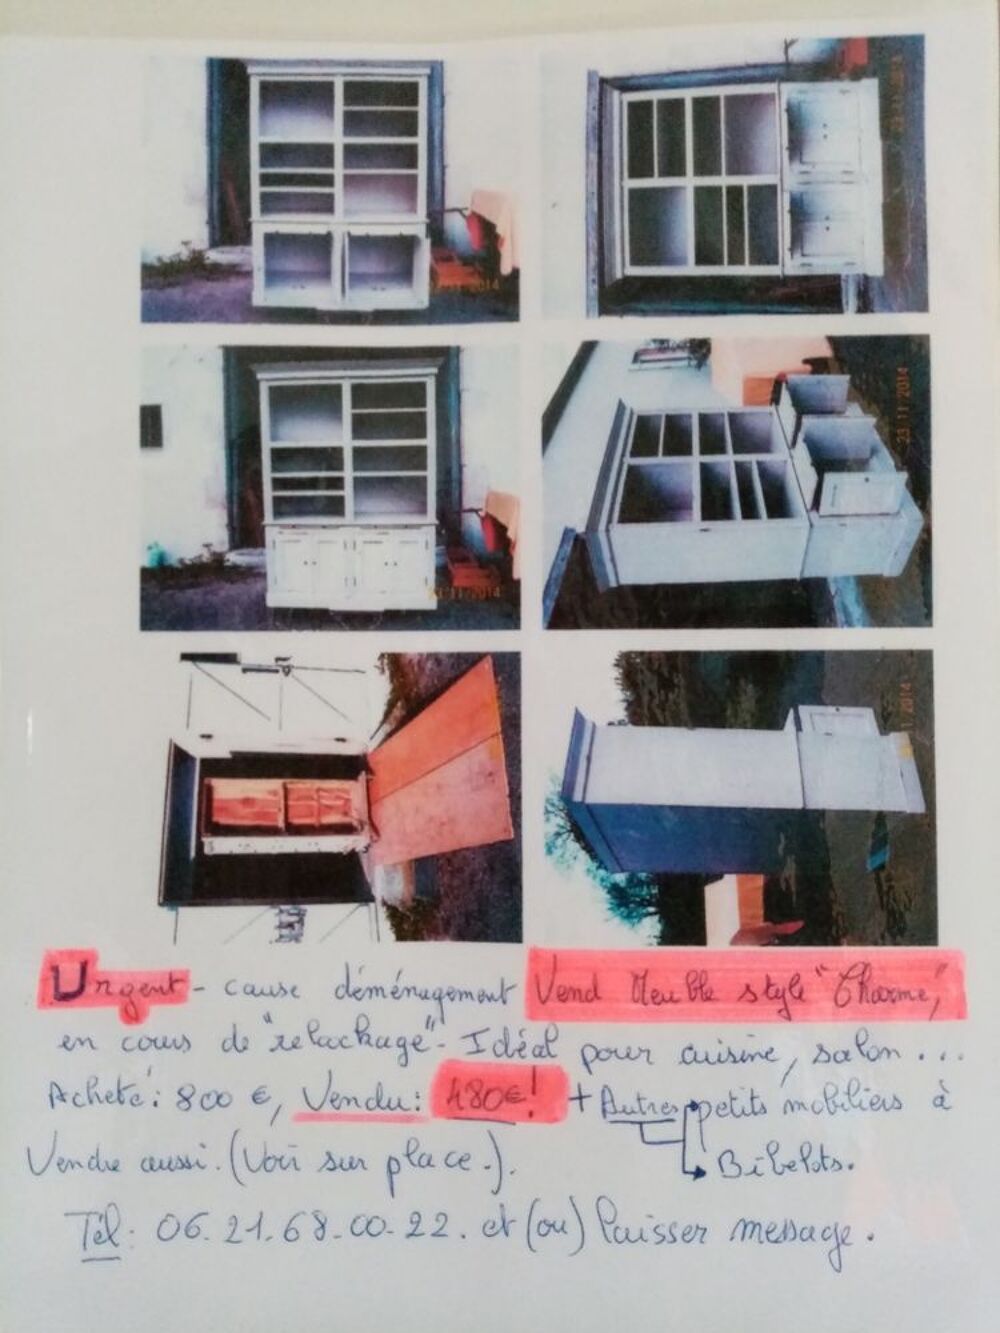 23 11 2014
11 2014
23 11 2014
23 11 2014
2014
Urgent - cause déménagement Vend Meuble style "Charme,"
en cours de "relackage" - Idéal pour cuisine, salon ...
Acheté: 800 €, Vendu: 480€! + Autres petits mobiliers à
Vendre aussi. (Voir sur place.). Bibelots.
Tél: 06.21.68.00.22. et (ou) laisser message.